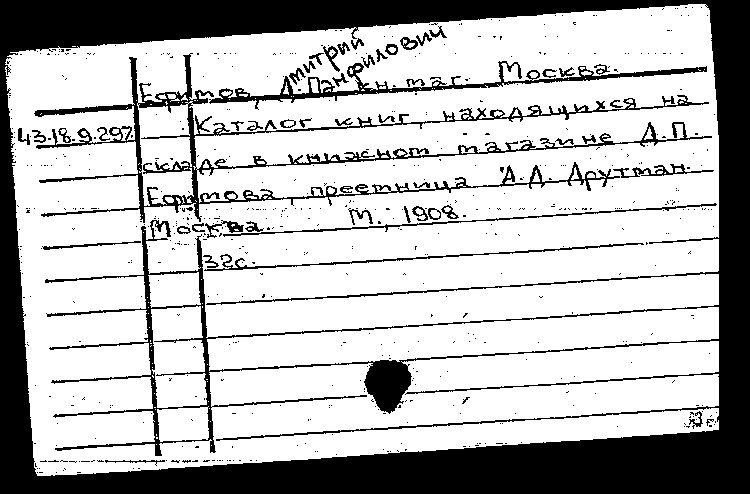 Дмитрий Панфилович
Ефимов, Д.П., кн. маг. Москва.
43.18.9.297
Каталог книг, находящихся на
складе в книжном магазине Д.П.
Ефимова, преемница А.Д. Друтман.
Москва. М., 1908.
32с.